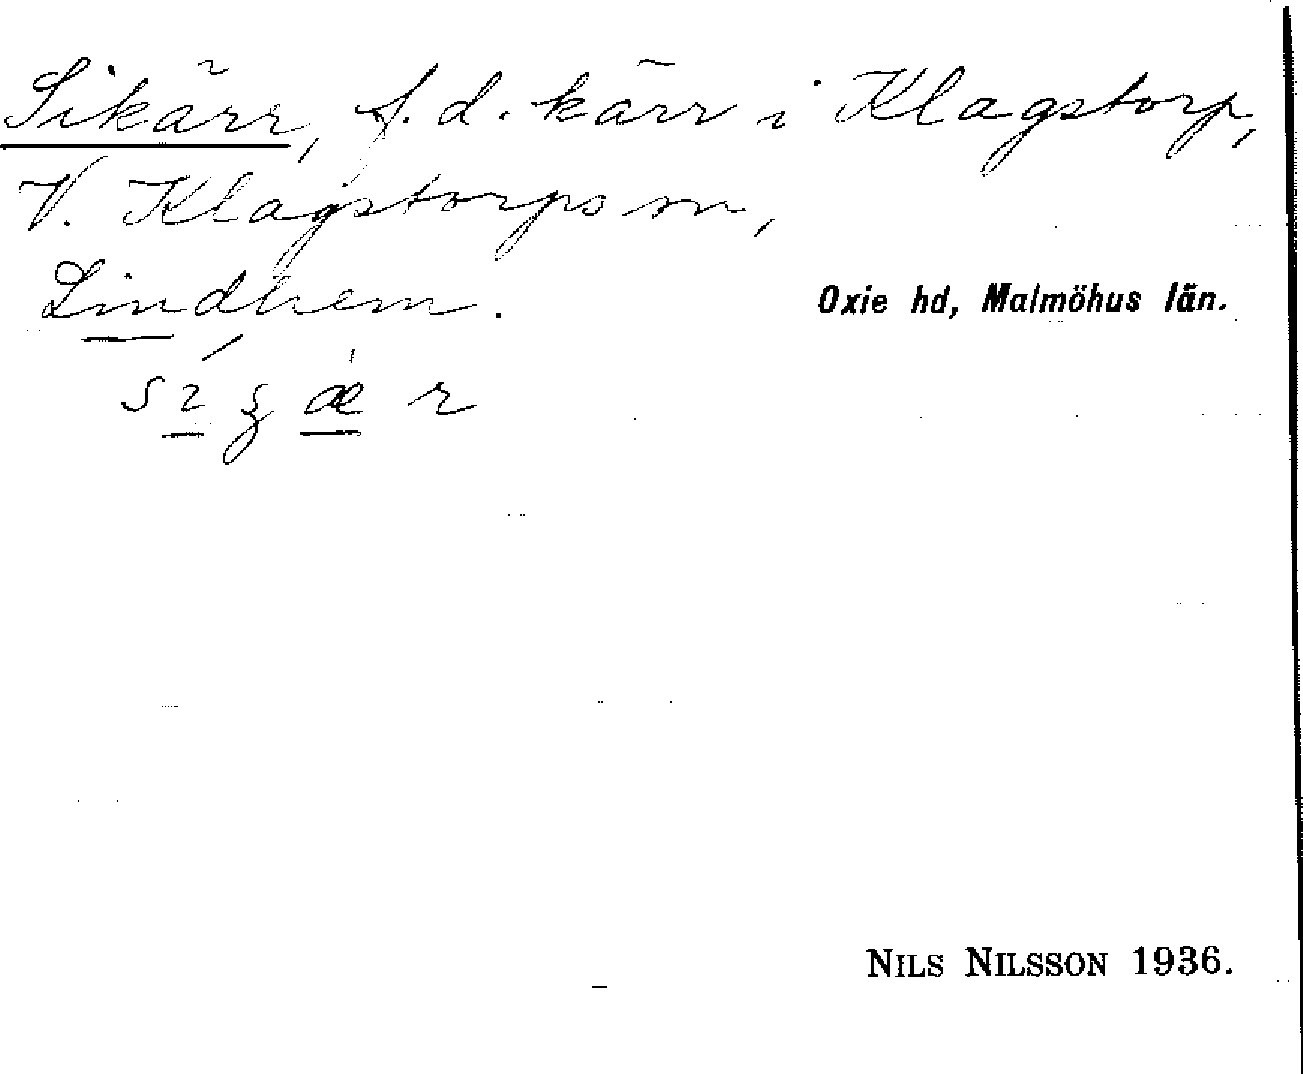 Sikärr, f.d. kärr i Klagstorp,
V. Klagstorps sn,
Lindhem.
Oxie hd, Malmöhus län.
NILS NILSSON 1936.